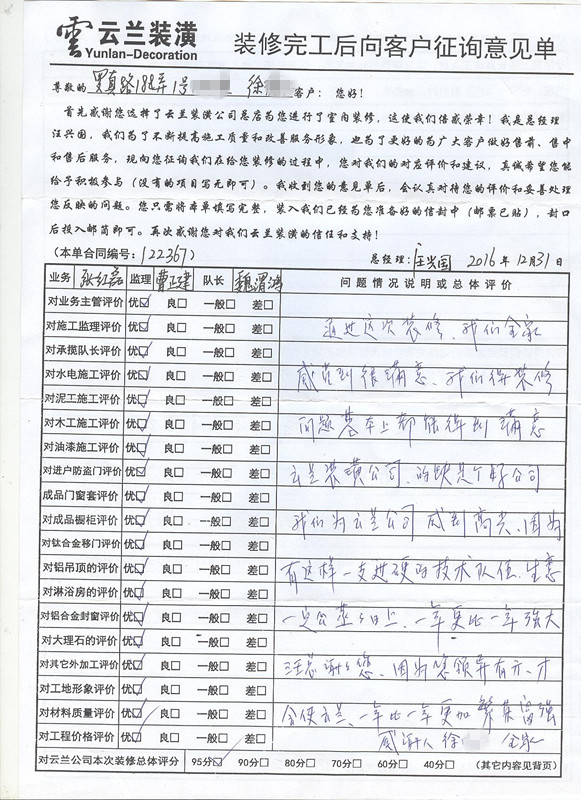 雲 云兰装潢
Yunlan-Decoration
装修完工后向客户征询意见单
尊敬的罗真路188弄1号 徐 客户：您好！
首先感谢您选择了云兰装潢公司总店为您进行了室内装修，这使我们倍感荣幸！我是总经理
汪兴国，我们为了不断提高施工质量和改善服务形象，也为了更好的为广大客户做好售前、售中
和售后服务，现向您征询我们在给您装修的过程中，您对我们的对应评价和建议，真诚希望您能
给予积极参与（没有的项目写无即可）。我收到您的意见单后，会认真对待您的评价和妥善处理
您反映的问题。您只需将本单填写完整，装入我们已经为您准备好的信封中（邮票已贴），封口
后投入邮筒即可。再次感谢您对我们云兰装潢的信任和支持！
（本单合同编号：122367） 总经理：汪兴国 2016年12月31日
业务 张红磊 监理 曹正建 队长 魏渭鸿 问题情况说明或总体评价
对业务主管评价 优☑ 良□ 一般□ 差□
对施工监理评价 优☑ 良□ 一般□ 差□ 通过这次装修，我们全家
对承揽队长评价 优☑ 良□ 一般□ 差□
对水电施工评价 优☑ 良□ 一般□ 差□ 感觉到很满意、我们得装修
对泥工施工评价 优☑ 良□ 一般□ 差□
对木工施工评价 优☑ 良□ 一般□ 差□ 问题基本上都能得到满意
对油漆施工评价 优☑ 良□ 一般□ 差□
对进户防盗门评价 优☑ 良□ 一般□ 差□ 云兰装璜公司、的缺是个好公司
成品门窗套评价 优☑ 良□ 一般□ 差□
对成品橱柜评价 优☑ 良□ 一般□ 差□ 我们为云兰公司感到高兴、因为
对钛合金移门评价 优☑ 良□ 一般□ 差□
对铝吊顶的评价 优☑ 良□ 一般□ 差□ 有这样一支过硬的技术队伍、生意
对淋浴房的评价 优☑ 良□ 一般□ 差□
对铝合金封窗评价 优☑ 良□ 一般□ 差□ 一定会蒸蒸日上、一年更比一年强大
对大理石的评价 优☑ 良□ 一般□ 差□
对其它外加工评价 优☑ 良□ 一般□ 差□ 汪总谢谢您、因为您领导有方、才
对工地形象评价 优☑ 良□ 一般□ 差□
对材料质量评价 优☑ 良□ 一般□ 差□ 会使云兰、一年比一年更加繁荣富强
对工程价格评价 优☑ 良□ 一般□ 差□ 感谢人 徐 全家
对云兰公司本次装修总体评分 95分☑ 90分□ 80分□ 70分□ 60分□ 40分□ （其它内容见背页）